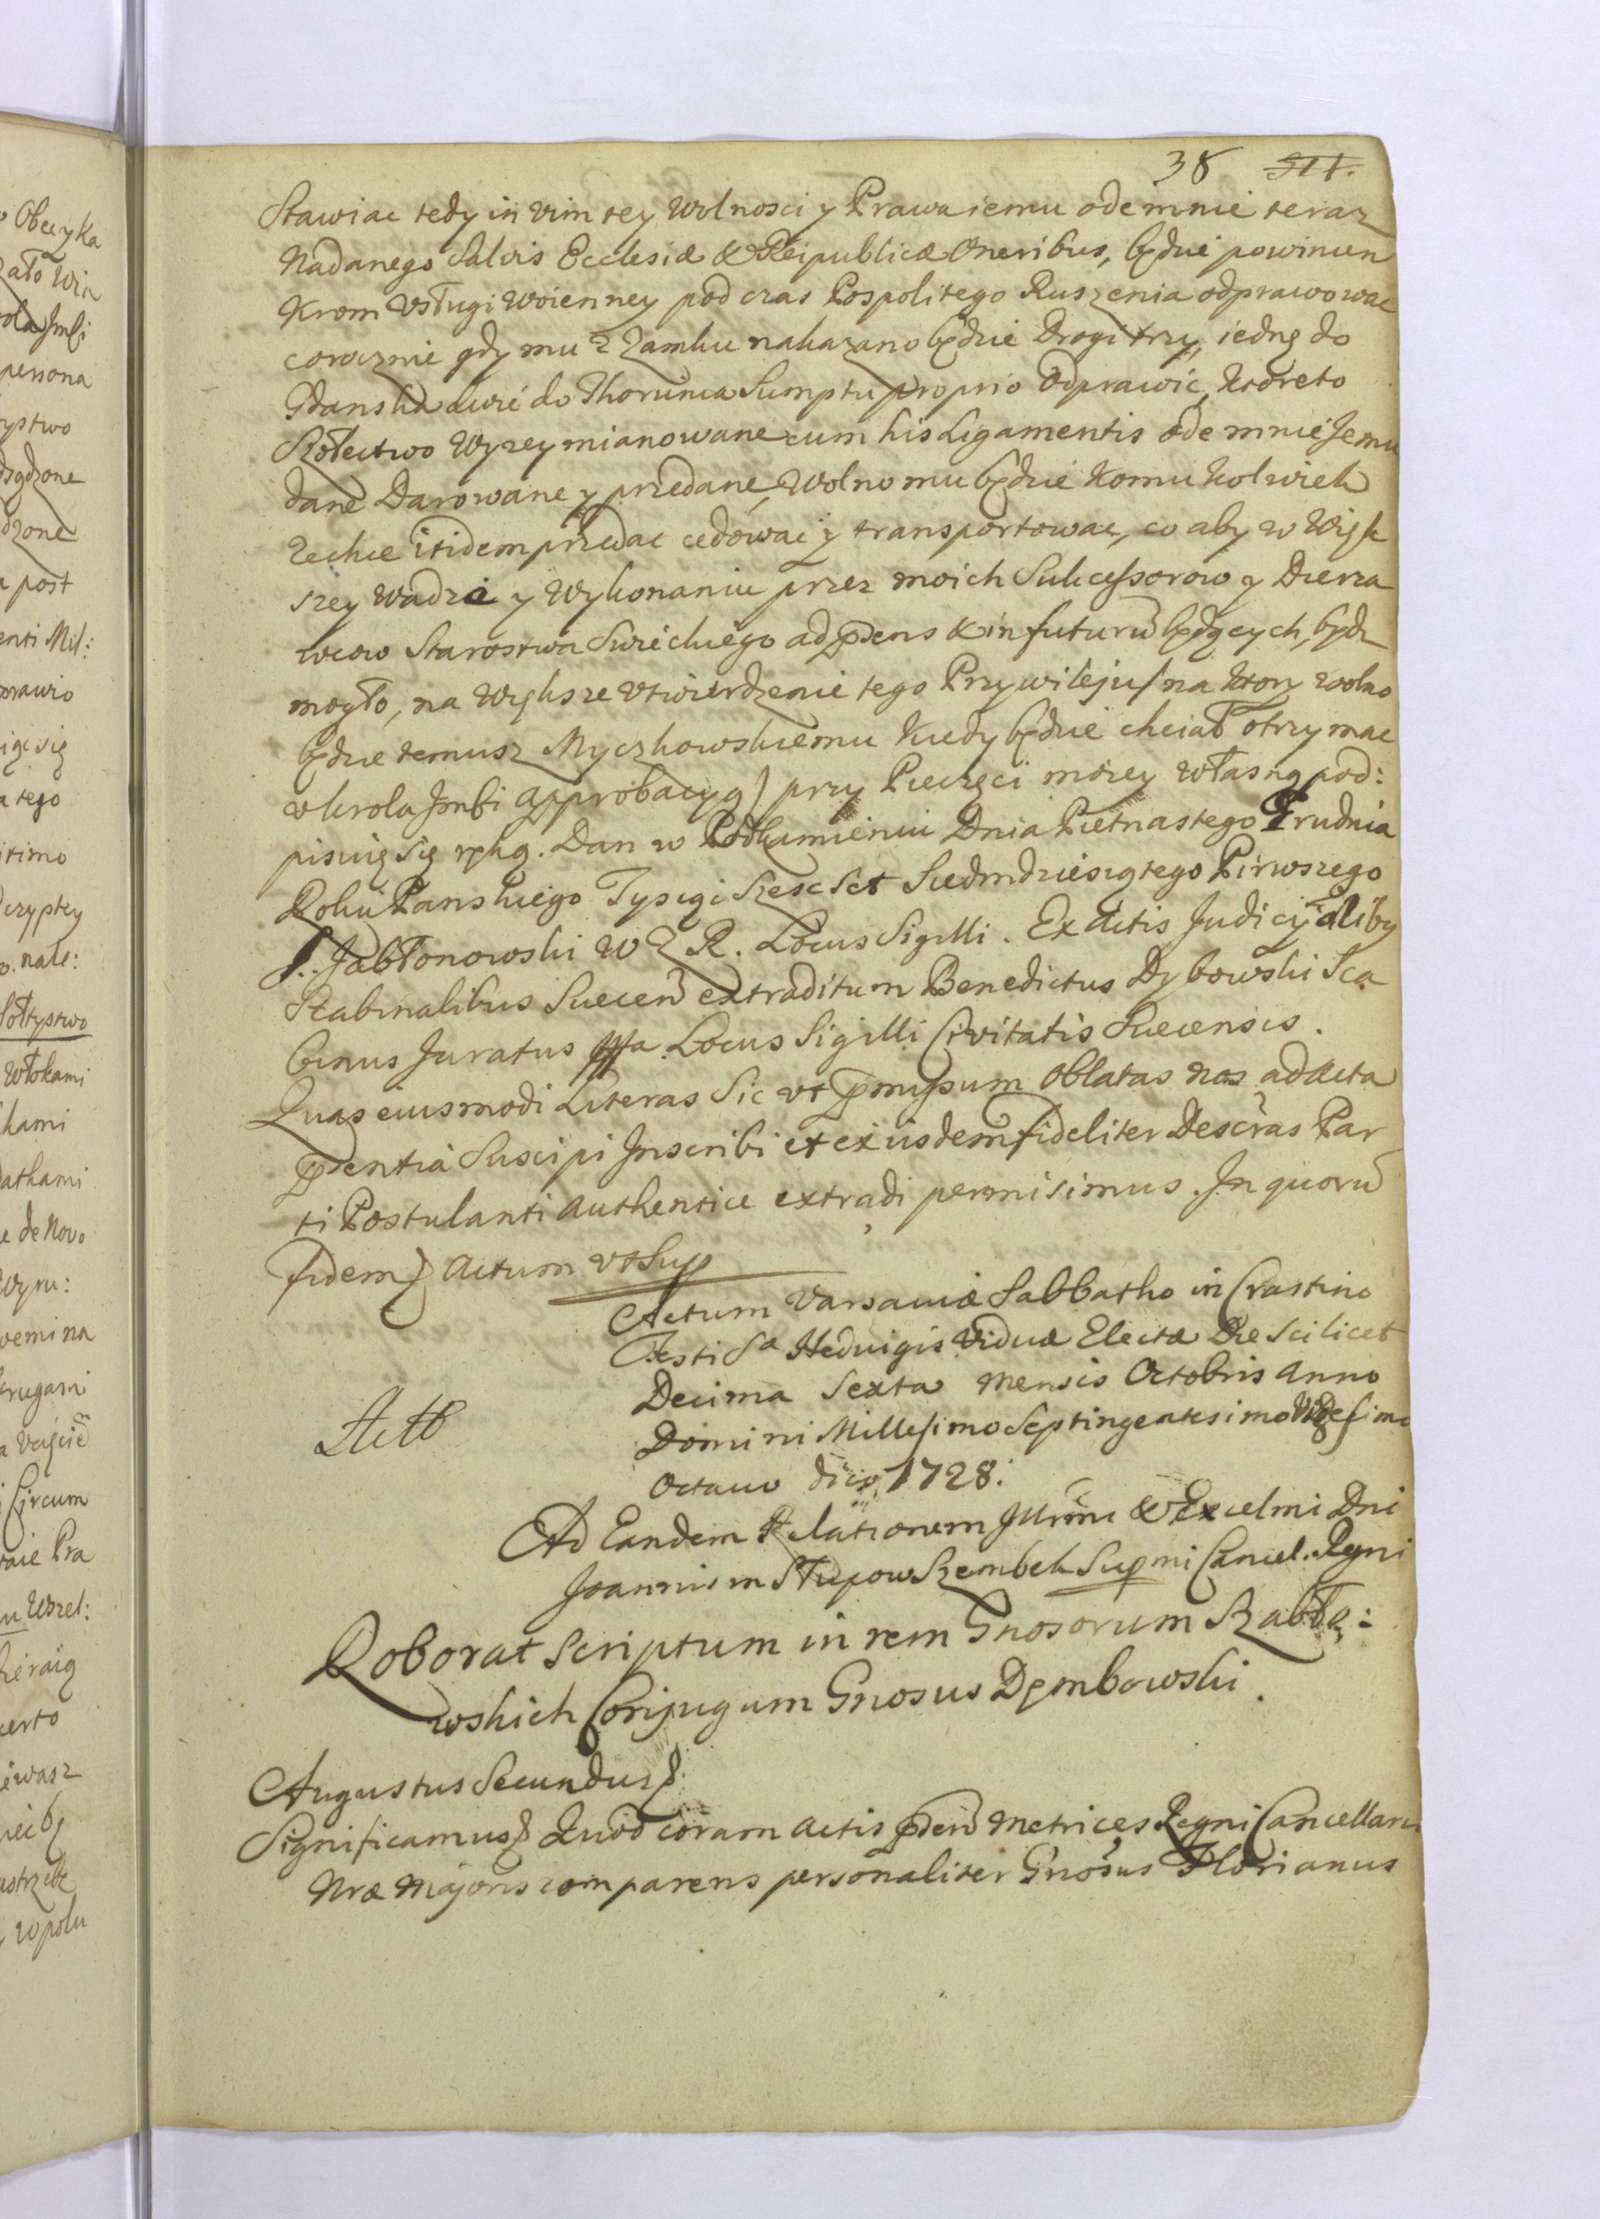 38 511.
Stawiac tedy in vim tey wolnosci y Prawa iemu odemnie teraz
Nadanego Salvis Ecclesiæ & Reipublicæ Oneribus, będzie powinien
Krom Usługi woienney podczas Pospolitego Ruszenia odprawowac
corocznie gdy mu z Zamku nakazano będzie Drogi trzy, iednę do
Gdanska dwie do Thorunia Sumptu proprio Odprawić, Ktoreto
Sołectwo Wyzey mianowane cum his Ligamentis odemnie Jemu
dane Darowane y przedane, Wolno mu będzie Komu kolwiek
zechce itidem przedac cedowac y transportowac, co aby w Więk
szey Wadze y Wykonaniu przez moich Sukcessorow y Dierza
wcow Starostwa Swieckiego ad pdens & in futurũ będących, bydz
mogło, na większe utwierdzenie tego Przywileju / na ktory wolno
będzie temusz Myczkowskiemu kiedy będzie chciał otrzymac
w krola Jmści approbacyą / przy Pieczęci moiey własną pod:
pisuię się ręką. Dan w Podkamieniu Dnia Pietnastego Grudnia
Roku Panskiego Tysiąc Szesc Set Siedmdziesiątego Pierwszego
S. Jabłonowski W Z R. Locus Sigilli. Ex Actis Judicij aliby
Scabinalibus Suecen̄ extraditum Benedictus Dybowski Sca
binus Juratus mpa Locus Sigilli Civitatis Suecensis.
Quas eiusmodi Literas Sic ut pmissum oblatas nos ad Acta
pdentia Suscipi Inscribi et exiisdem fideliter Descrãs Par
ti Postulanti authentice extradi permisimus. In quorũ
fidem Actum ut Sup
Actum Varsaviæ Sabbatho in Crastino
Festi Sa Hedvigis Viduæ Electæ Die Scilicet
Decima Sexta Mensis Octobris Anno
Domini Millesimo Septingentesimo Vigesimo
Octavo dico 1728.
Ad Eandem Relationem Jllrm̃i & Excelmi Dni
Joannis in Słupow Szembek Supmi Cancel. Regni
Roborat Scriptum in rem Gnosorum Szabłę:
wskich Conjugum Gnosus Dembowski.
Augustus Secundus
Significamus Quod coram Actis pden̄ Metrices Regni Cancellariæ
Nræ Majoris comparens personaliter Gnosus Florianus